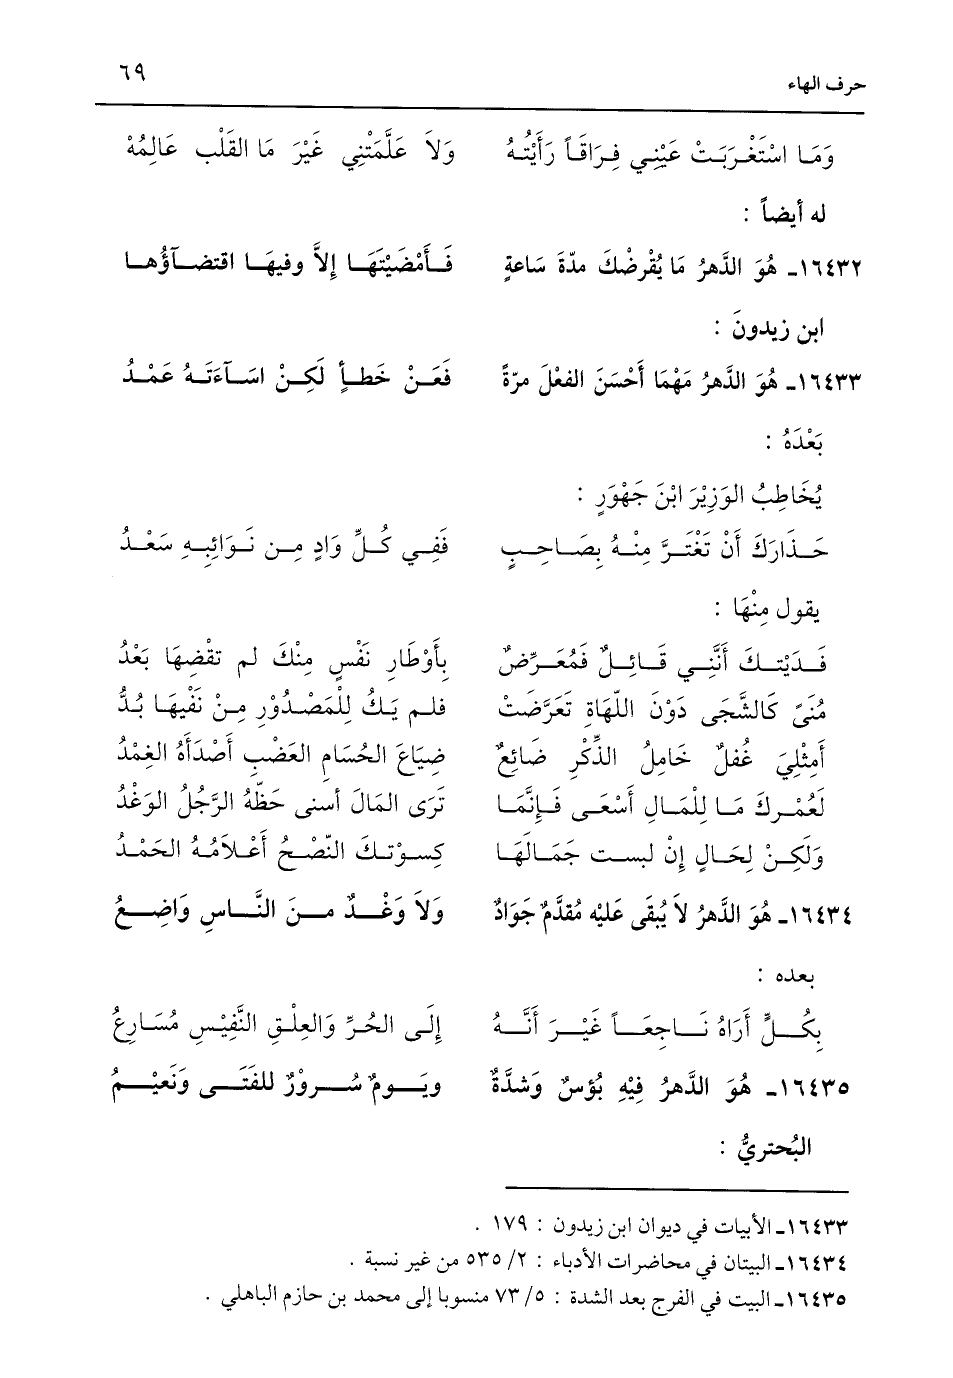 حرف الهاء ٦٩
وَمَا اسْتَغْرَبَتْ عَيْنِي فِرَاقَاً رَأَيْتُهُ وَلاَ عَلَّمَتْنِي غَيْرَ مَا القَلْب عَالِمُهْ
له أيضاً :
١٦٤٣٢- هُوَ الدَّهرُ مَا يُقْرِضْكَ مدّةَ سَاعةٍ فَأَمْضَيْتَهَا إلاَّ وفيهَا اقتضآؤُها
ابن زيدونَ :
١٦٤٣٣- هُوَ الدَّهرُ مَهْمَا أَحْسَنَ الفعْلَ مرّةً فَعَنْ خَطأٍ لَكِنْ اسَآءَتَهُ عَمْدُ
بَعْدَهُ :
يُخَاطِبُ الوَزِيْرَ ابْنَ جَهْوَرٍ :
حَذَارَكَ أَنْ تَغْتَرَّ مِنْهُ بِصَاحِبٍ فَفِي كُلِّ وَادٍ مِن نَوَائِبِهِ سَعْدُ
يقول مِنْهَا :
فَدَيْتكَ أَنَّنِي قَائِلٌ فَمُعَرِّضٌ بِأَوْطَارِ نَفْسٍ مِنْكَ لم تقْضِهَا بَعْدُ
مُنَىً كَالشَّجَى دَوْنَ اللّهَاةِ تَعَرَّضَتْ فلم يَكُ لِلْمَصْدُوْرِ مِنْ نَفْيهَا بُدُّ
أَمِثْلِيَ غفلٌ خَامِلُ الذِّكْرِ ضَائِعٌ ضِيَاعَ الحُسَامِ العَضْبِ أَصْدَأَهُ الغِمْدُ
لَعُمْركَ مَا لِلْمَالِ أَسْعَى فَإِنَّمَا تَرَى المَالَ أسنى حَظّهُ الرَّجُلُ الوَغْدُ
وَلَكِنْ لِحَالٍ إِنْ لبست جَمَالَهَا كسوْتكَ النّصْحُ أَعْلاَمُهُ الحَمْدُ
١٦٤٣٤- هُوَ الدَّهرُ لاَ يُبقَى عَليْه مُقدَّمٌ جَوَادٌ وَلاَ وَغْدٌ منَ النَّاسِ وَاضِعُ
بعده :
بِكُلٍّ أَرَاهُ نَاجِعَاً غَيْرَ أَنَّهُ إِلَى الحُرِّ وَالعِلْقِ النَّفِيْسِ مُسَارِعُ
١٦٤٣٥- هُوَ الدَّهرُ فِيْهِ بُؤسٌ وَشدَّةٌ ويَومٌ سُرورٌ للفَتَى وَنَعيْمُ
البُحتريُّ :
١٦٤٣٣- الأبيات في ديوان ابن زيدون : ١٧٩ .
١٦٤٣٤- البيتان في محاضرات الأدباء : ٢/ ٥٣٥ من غير نسبة .
١٦٤٣٥- البيت في الفرج بعد الشدة : ٥/ ٧٣ منسوبا إلى محمد بن حازم الباهلي .